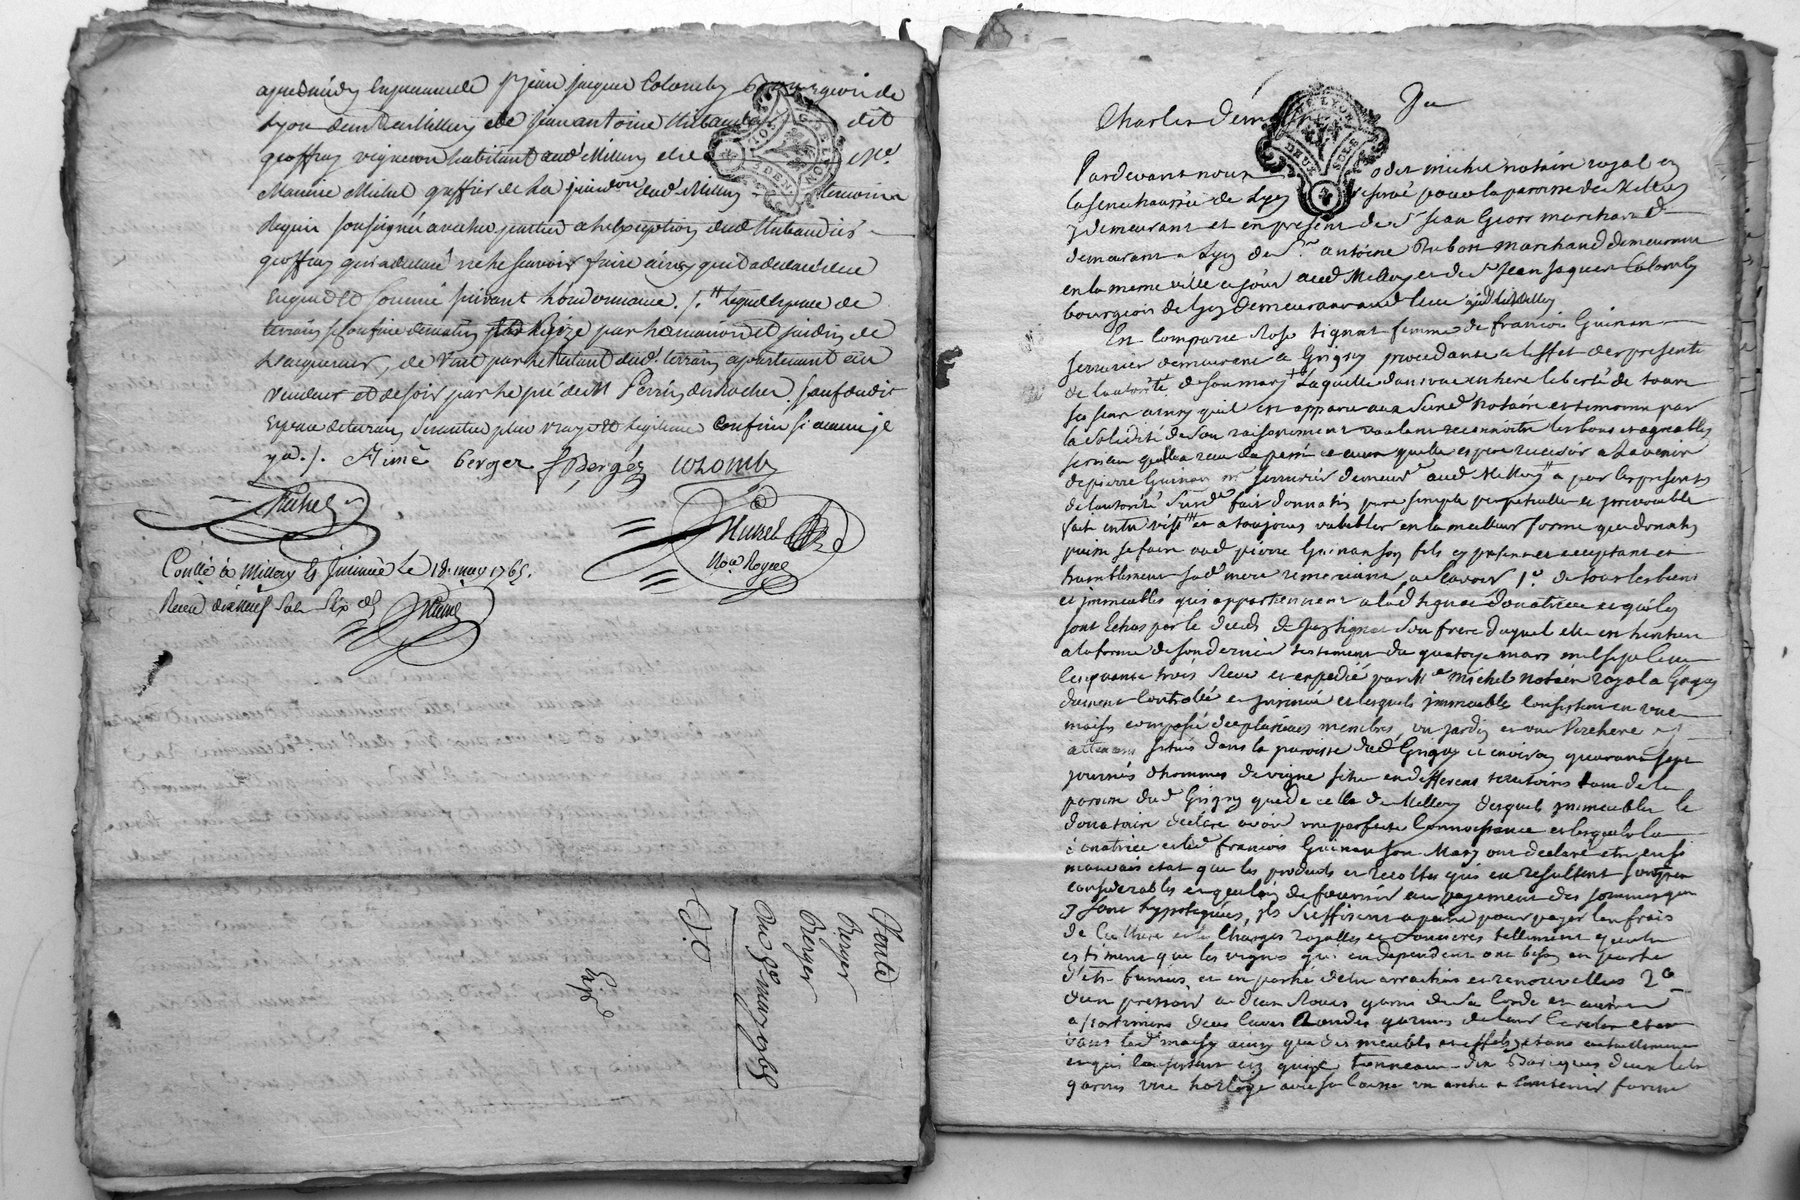 apresmidy en presence de Sr jean jacque Colomby Bourgeois de
Lyon demt a Millery et de jean antoine Thibaudier dit
geoffray vigneron habitant aud Millery et de Me
Maurice Michel greffier de la juridon dud Millery temoins
Requis soussignés avec les parties a l'exception dud Thibaudier
geoffray qui a declaré ne le scavoir faire ainsy qu'il a declaré de ce
Enquis et sommé suivant l'ordonnance ./. lequel espace de
terrain se confine de matin par la maison et jardin de
l'acquereur, de vent par le restant dud terrain apartenant au
vendeur et de soir par le pré de M Perrin du Rocher sauf
Espace de terrain plus vrays et legitimes Confins si aucuns je
y a ./. Aimé berger J Bergér colomby
Michel
Michel
Nore Royal
Conllé à Millery & Insinué le 18. may 1765.
Receu sols six ds Michel
Vente
Berger
Berger
Du 8e may 1765
Expé
LYON
DEUX SOLS
Charles
Pardevant nous michel notaire royal en
la senechaussée de Lyon reservé pour la paroisse de Millery
y demeurant et en present de Sr Jean marchand
demeurant a Lyon de Sr antoine Marchand demeurant
en la meme ville a jour aud Millery et de Sr Jean Jaques Colomby
bourgeois de Lyon demeurant aud lieu aud Millery
En Comparu Rose tignat femme de francois Guinan
serrurier demeurant a Grigny procedante a l'effet des presentes
de l'autorité de son mary laquelle dans une entiere liberté de tous
ses sens ainsy qu'il est apparu aux Sund Notaire et temoins par
la solidité de son raisonnement voulant reconnoitre les bons et agreables
services qu'elle a receu du passé et ceux qu'elle espere recevoir a l'avenir
de pierre Guinan me serrurier demeurt aud Millery a par ces presentes
de l'autorité Sud fait donnation pure simple perpetuelle et irrevocable
fait entre vifs et a toujours valable en la meilleure forme que donation
puisse se faire aud pierre Guinan son fils cy present et acceptant et
humblement sad mere remerciant, a Scavoir 1o de tous les biens
et immeubles qui appartiennent a lad tignat donatrice et qu'ils
sont Echus par le deceds de tignat son frere duquel elle est heritiere
a la forme de son dernier testament du quatorze mars mil sept cent
cinquante trois Receu et expedié par Me Michel notaire royal a Grigny
duement Controllé et insinué et lesquels immeubles Consistent en une
maison composée de plusieurs membres, un jardin et une Verchere
attenant situés dans la paroisse dud Grigny et environ quarante sept
journés d'hommes de vigne situés en differens territoires tant de la
paroisse dud Grigny que de celle de Millery desquels immeubles le
donataire declare avoir une parfaite Connoissance et lesquels la
donatrice et led francois Guinan son Mary ont declaré etre en si
mauvais etat que les produits et recoltes qui en resultent
considerables en que loin de fournir au payement des sommes qui
y sont hypotequées, ils suffisent a peine pour payer les frais
de Culture et les Charges royalles et foncieres tellement qu'ils
estiment que les vignes qui en dependent ont besoin en partie
d'etre fumées et en partie d'etre arrachées et renouvellées 2o
d'un pressoir a deux Roues garni de sa Corde et autres
assortimens deux Cuves Rondes garnies de leurs Cercles etant
dans lad maison ainsy que des meubles et effets y etans actuellement
et qui Consistent en quinze tonneaux dix Bariques deux lits
garnis une horloge avec sa Caisse un arche a Contenir farine